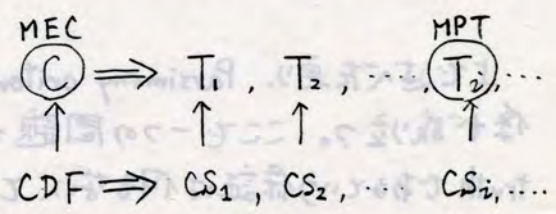 MEC MPT
C ⇒ T₁, T₂, ‥‥, Tᵢ, ‥‥
↑ ↑ ↑ ↑
CDF ⇒ CS₁, CS₂, ‥‥ CSᵢ, ‥‥